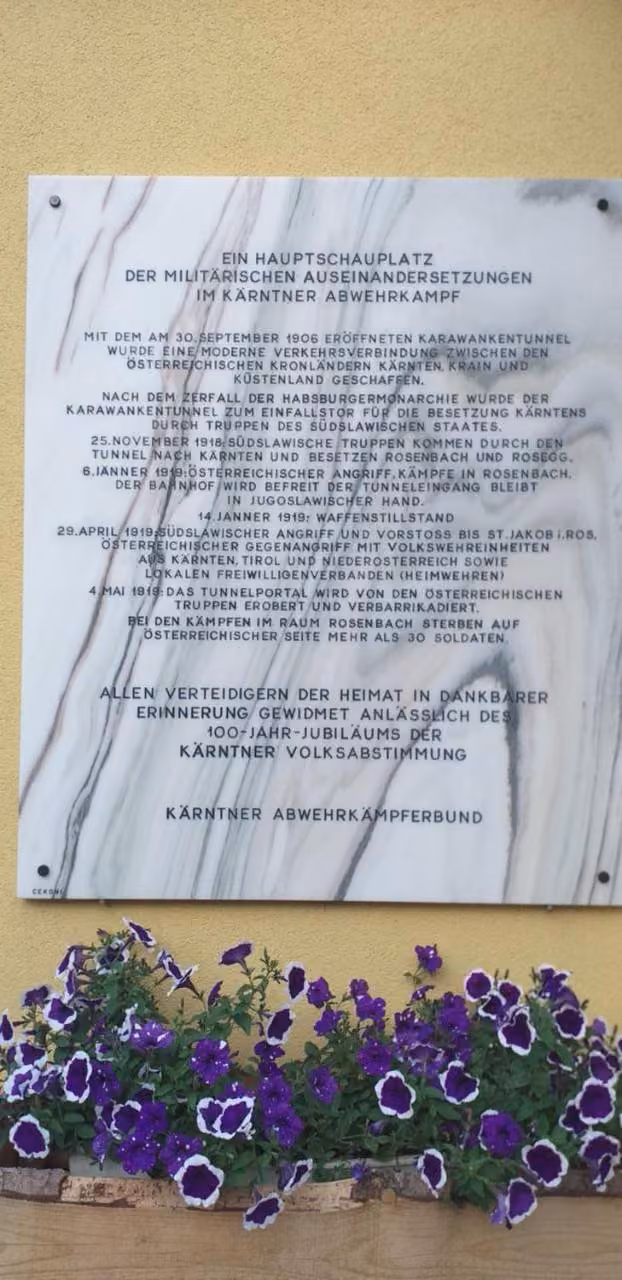 EIN HAUPTSCHAUPLATZ
DER MILITÄRISCHEN AUSEINANDERSETZUNGEN
IM KÄRNTNER ABWEHRKAMPF
MIT DEM AM 30.SEPTEMBER 1906 ERÖFFNETEN KARAWANKENTUNNEL
WURDE EINE MODERNE VERKEHRSVERBINDUNG ZWISCHEN DEN
ÖSTERREICHISCHEN KRONLÄNDERN KÄRNTEN, KRAIN UND
KÜSTENLAND GESCHAFFEN.
NACH DEM ZERFALL DER HABSBURGERMONARCHIE WURDE DER
KARAWANKENTUNNEL ZUM EINFALLSTOR FÜR DIE BESETZUNG KÄRNTENS
DURCH TRUPPEN DES SÜDSLAWISCHEN STAATES.
25.NOVEMBER 1918:SÜDSLAWISCHE TRUPPEN KOMMEN DURCH DEN
TUNNEL NACH KÄRNTEN UND BESETZEN ROSENBACH UND ROSEGG.
6.JÄNNER 1919:ÖSTERREICHISCHER ANGRIFF, KÄMPFE IN ROSENBACH.
DER BAHNHOF WIRD BEFREIT DER TUNNELEINGANG BLEIBT
IN JUGOSLAWISCHER HAND.
14.JÄNNER 1919: WAFFENSTILLSTAND
29.APRIL 1919:SÜDSLAWISCHER ANGRIFF UND VORSTOSS BIS ST.JAKOB i.ROS.
ÖSTERREICHISCHER GEGENANGRIFF MIT VOLKSWEHREINHEITEN
AUS KÄRNTEN, TIROL UND NIEDERÖSTERREICH SOWIE
LOKALEN FREIWILLIGENVERBÄNDEN (HEIMWEHREN)
4.MAI 1919:DAS TUNNELPORTAL WIRD VON DEN ÖSTERREICHISCHEN
TRUPPEN EROBERT UND VERBARRIKADIERT.
BEI DEN KÄMPFEN IM RAUM ROSENBACH STERBEN AUF
ÖSTERREICHISCHER SEITE MEHR ALS 30 SOLDATEN.
ALLEN VERTEIDIGERN DER HEIMAT IN DANKBARER
ERINNERUNG GEWIDMET ANLÄSSLICH DES
100-JAHR-JUBILÄUMS DER
KÄRNTNER VOLKSABSTIMMUNG
KÄRNTNER ABWEHRKÄMPFERBUND